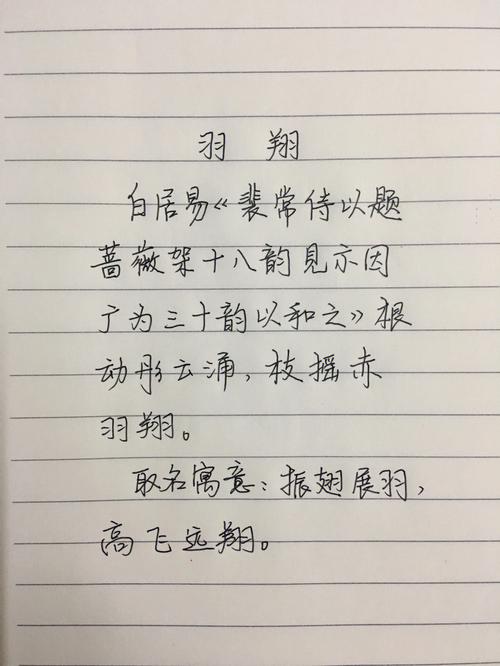 羽 翔
白居易《裴常侍以题
蔷薇架十八韵见示因
广为三十韵以和之》根
动彤云涌，枝摇赤
羽翔。
取名寓意：振翅展羽，
高飞远翔。